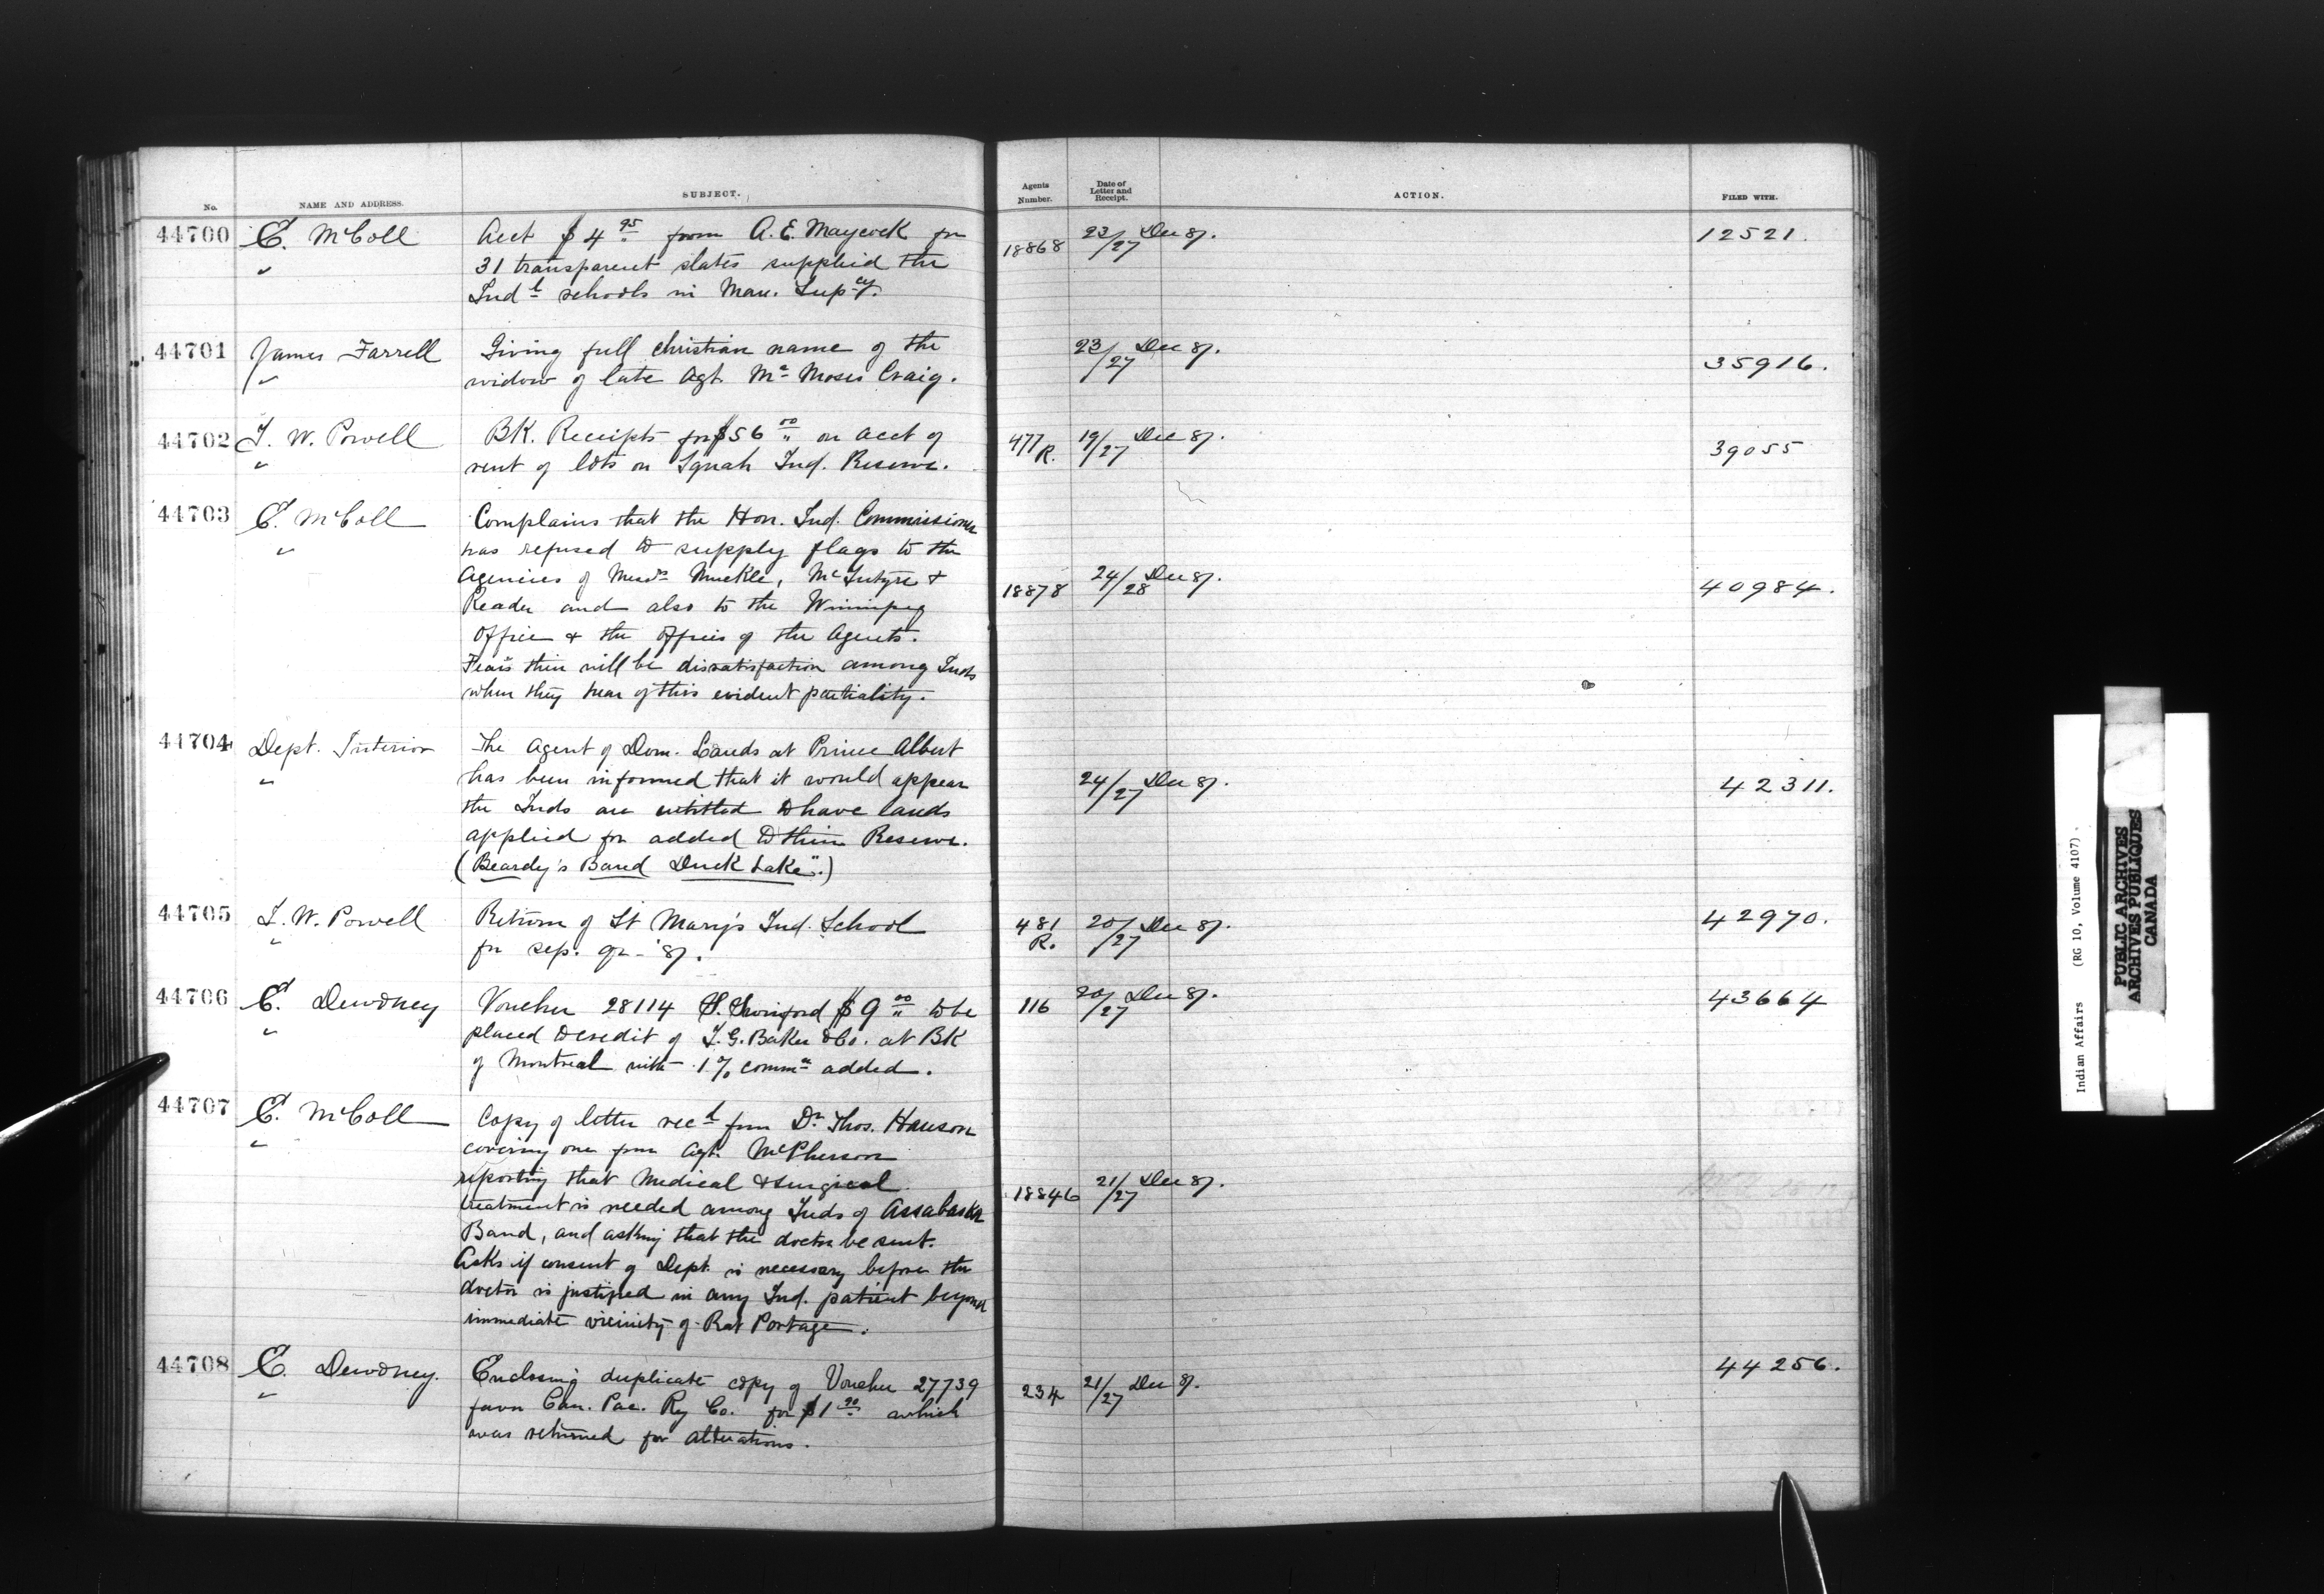 No. NAME AND ADDRESS. SUBJECT. Agents Number. Date of Letter and Receipt. ACTION. FILED WITH.
44700 E. McColl Acct $4.95 from A.E. Maycock for 18868 23/27 Dec 87. 12521.
" 31 transparent slates supplied the
Ind^l schools in Man. Sup^cy.
44701 James Farrell Giving full christian name of the 23/27 Dec 87. 35916.
" widow of late Agt. Mr Moses Craig.
44702 I. W. Powell BK. Receipts for $56.00 on acct of 477 R. 19/27 Dec 87. 39055
" rent of lots on Squah Ind. Reserve.
44703 E. McColl Complains that the Hon. Ind. Commissioner
" has refused to supply flags to the
Agencies of Messrs Muckle, McIntyre & 18878 24/28 Dec 87. 40984.
Reader and also to the Winnipeg
Office & the offices of the Agents.
Fears there will be dissatisfaction among Inds
when they hear of this evident partiality.
44704 Dept. Interior The Agent of Dom. Lands at Prince Albert
" has been informed that it would appear 24/27 Dec 87. 42311.
the Inds are entitled to have lands
applied for added to their Reserve.
(Beardy's Band Duck Lake".)
44705 I. W. Powell Return of St Mary's Ind. School 481 R. 20/27 Dec 87. 42970.
" for sep. qr - '87.
44706 E. Dewdney Voucher 28114 S. Swinford $9.00 to be 116 20/27 Dec 87. 43664
" placed to credit of I.G. Baker & Co. at BK
of Montreal with 1% commn added.
44707 E. McColl Copy of letter rec^d from Dr Thos. Hanson
" covering one from Agt. McPherson
reporting that Medical & surgical 18846 21/27 Dec 87.
treatment is needed among Inds of Assabaska
Band, and asking that the doctor be sent.
Asks if consent of Dept. is necessary before the
doctor is justified in any Ind. patient beyond
immediate vicinity of Rat Portage.
44708 E. Dewdney. Enclosing duplicate copy of Voucher 27739 234 21/27 Dec 87. 44256.
" favor Can. Pac. Ry Co. for $1.90 which
was returned for alterations.
Indian Affairs (RG 10, Volume 4107)
PUBLIC ARCHIVES
ARCHIVES PUBLIQUES
CANADA